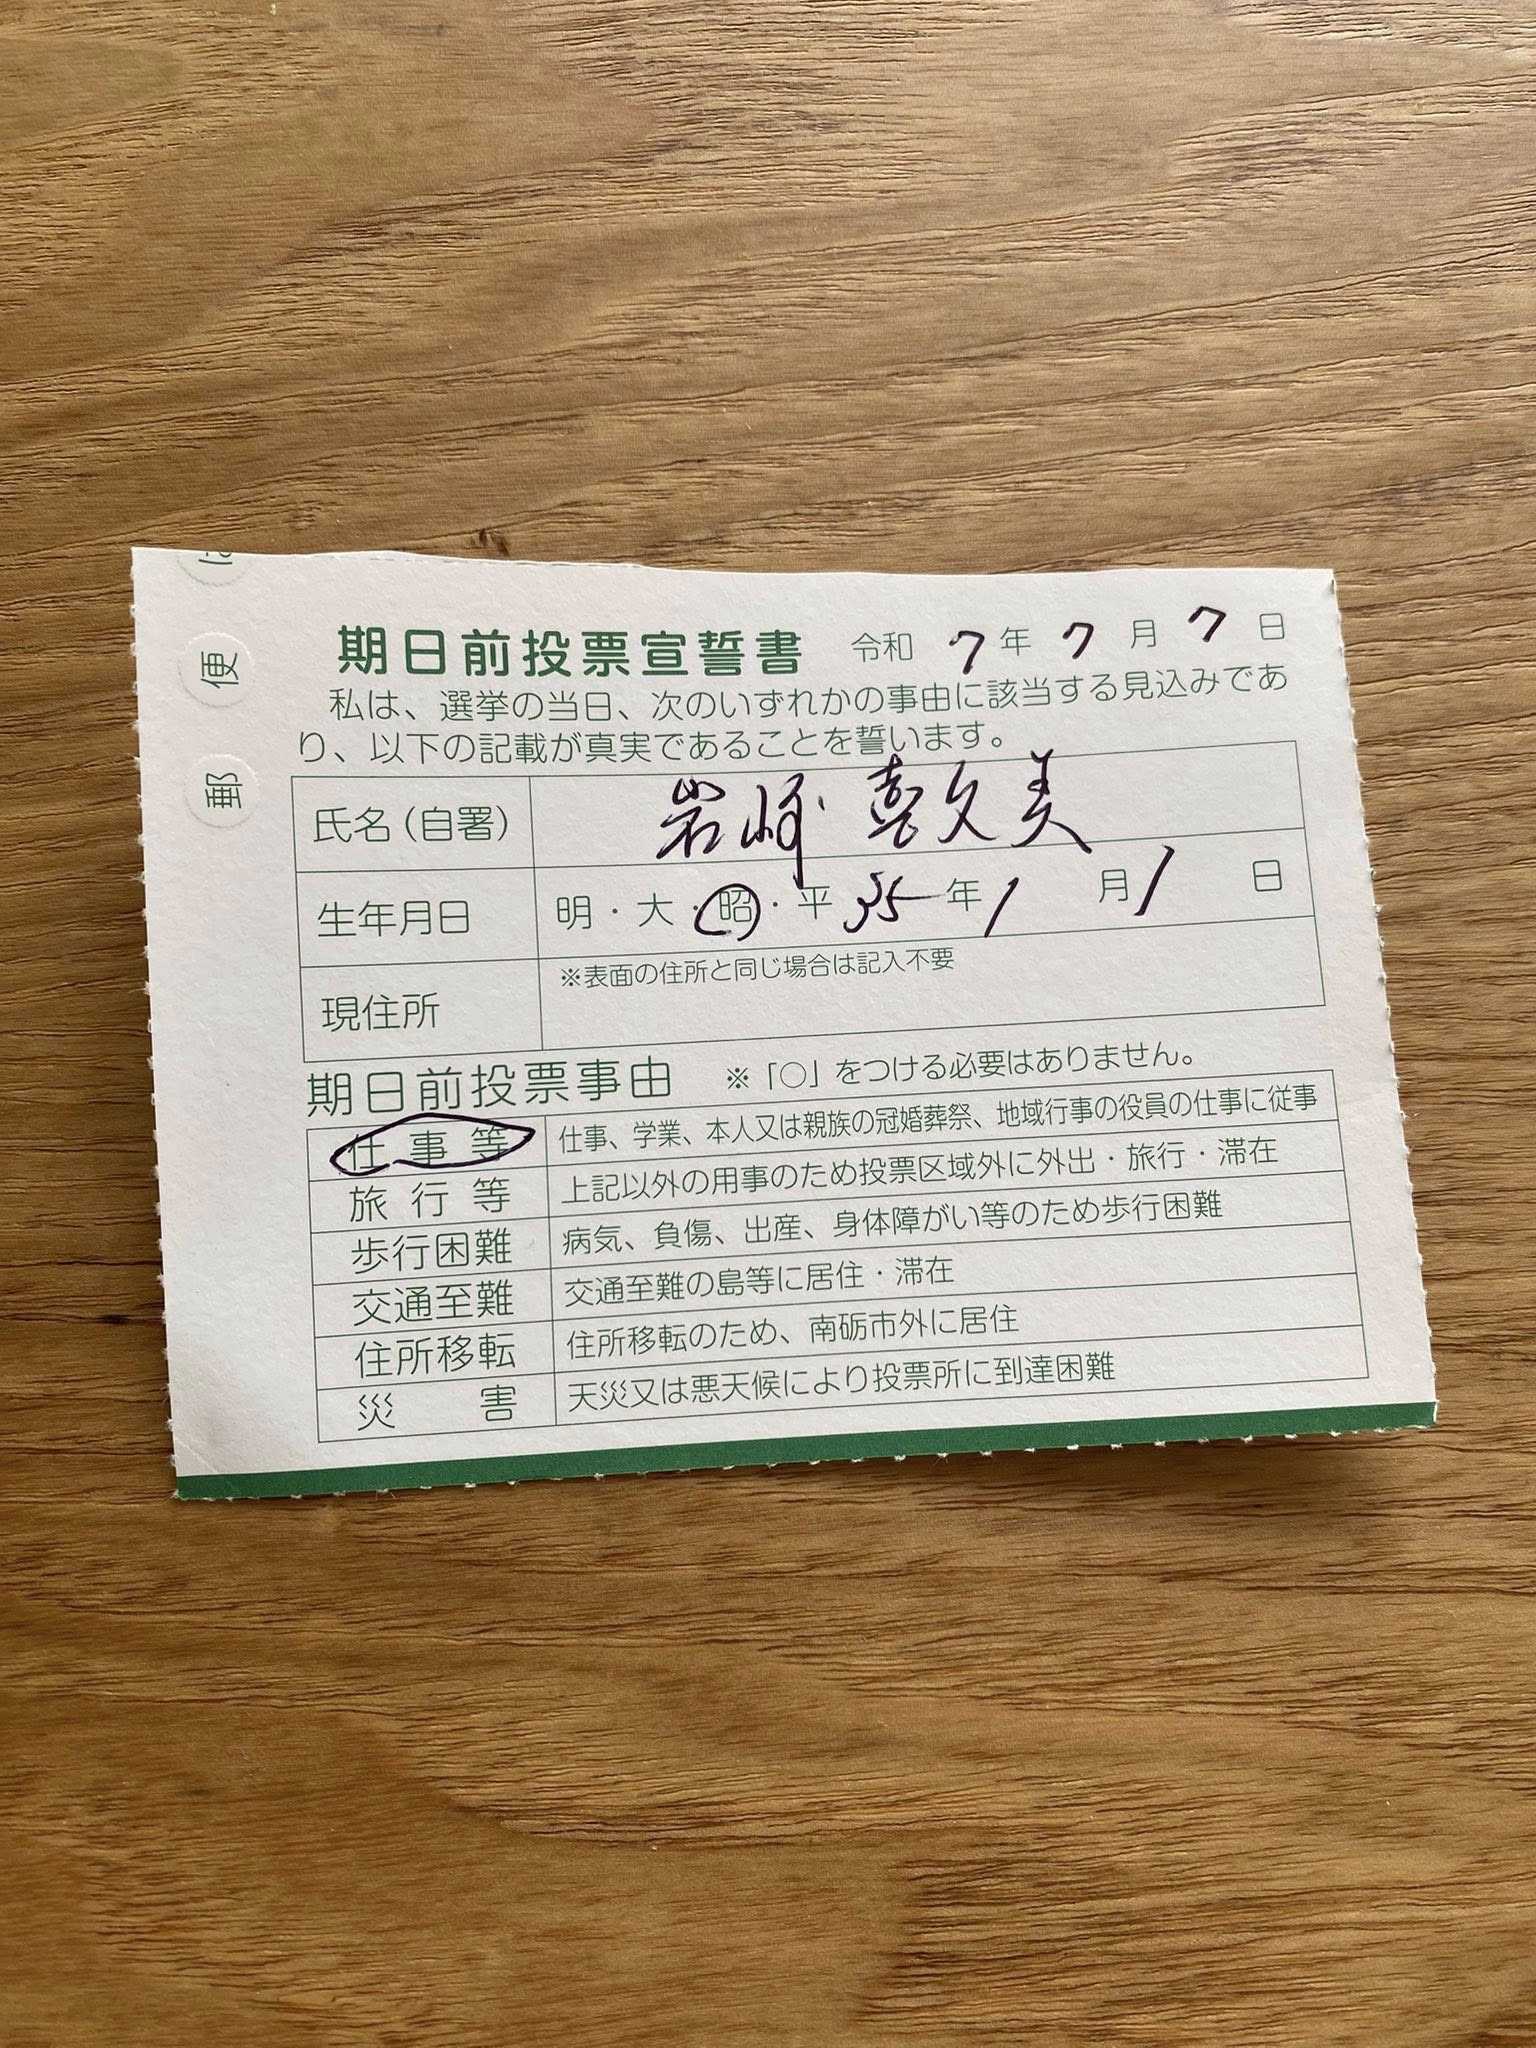 郵便は
期日前投票宣誓書 令和 7 年 7 月 7 日
私は、選挙の当日、次のいずれかの事由に該当する見込みであ
り、以下の記載が真実であることを誓います。
氏名（自署） 岩崎 喜久美
生年月日 明・大・昭・平 35 年 1 月 1 日
現住所 ※表面の住所と同じ場合は記入不要
期日前投票事由 ※「○」をつける必要はありません。
仕事等 仕事、学業、本人又は親族の冠婚葬祭、地域行事の役員の仕事に従事
旅行等 上記以外の用事のため投票区域外に外出・旅行・滞在
歩行困難 病気、負傷、出産、身体障がい等のため歩行困難
交通至難 交通至難の島等に居住・滞在
住所移転 住所移転のため、南砺市外に居住
災害 天災又は悪天候により投票所に到達困難